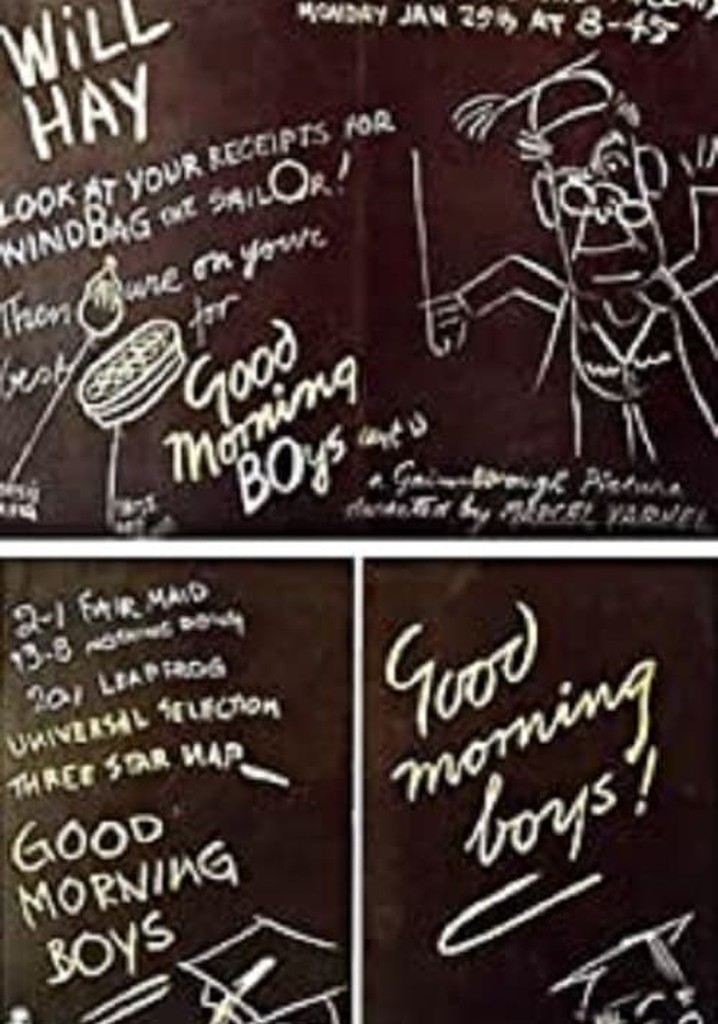 WiLL
HAY
MONDAY JAN 29th AT 8-45
LOOK AT YOUR RECEIPTS FOR
WINDBAG THE SAILOR!
Then on you're
best for
Good
Morning
BOys
a Gainsborough Picture
directed by MARCEL VARNEL
2-1 FAIR MAID
13-8 NOTHING DOING
20/1 LEAPFROG
UNIVERSAL SELECTION
THREE STAR NAP
GOOD
MORNING
BOYS
Good
morning
boys!